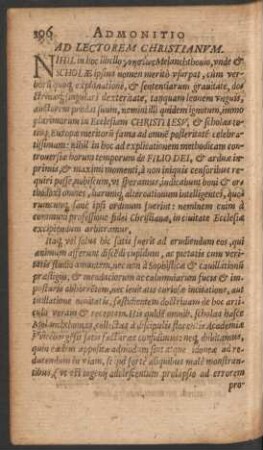 196 ADMONITIO
AD LECTOREM CHRISTIANVM.
NIHIL in hoc libello γνησίως Melanchthonis, vnde &
SCHOLÆ ipsius nomen meritò vsurpat, cum ver-
borũ quoq; explanatione, & sententiarum grauitate, do-
ctrinæq; singulari dexteritate, tanquam leonem vnguis,
auctorem prodat suum, nemini illi quidem ignotum, immo
plurimorum in Ecclesiam CHRISTI IESV, & scholas to-
tius Europæ meritorũ fama ad omnẽ posteritatẽ celebra-
tissimum: nihil in hoc ad explicationem methodicam con-
trouersiæ horum temporum de FILIO DEI, & ardua in-
primis, & maximi momenti, à non iniquis censoribus re-
quiri posse, nobiscum, vt speramus, indicabunt boni & or-
thodoxi omnes, harumq; alterationum intelligentes, quo-
cumque sanè ipsi ordinum fuerint: neminem enim à
communi professione fidei Christianæ, in ciuitate Ecclesiæ
excipiendum arbitramur.
Itaq; vel solus hic satis fuerit ad erudiendum eos, qui
animum afferunt discẽdi cupidum, ac putatum cum veri-
tatis studio amantem, nec non à Sophisticæ & cauillationis
præstigijs, & mendaciorum ac calumniarum fucis & im-
posturis abhorrentem, nec leuitatis curiosæ incitatione, aut
nouitatis, sustinentem doctrinam de hoc arti-
culo veram & receptam. His quidẽ omnib. scholas hasce
Melanchthonis, collectas à discipulis florentissimæ Academiæ
satis facturas confidimus: neq; dubitamus,
quin eædem oppositæ admodum sint atque idoneæ ad re-
ducendum in viam, si qui fortè aliquibus malè monstran-
tibus, & vt est ingenij adolescentium prolapsio ad errorem
pro-